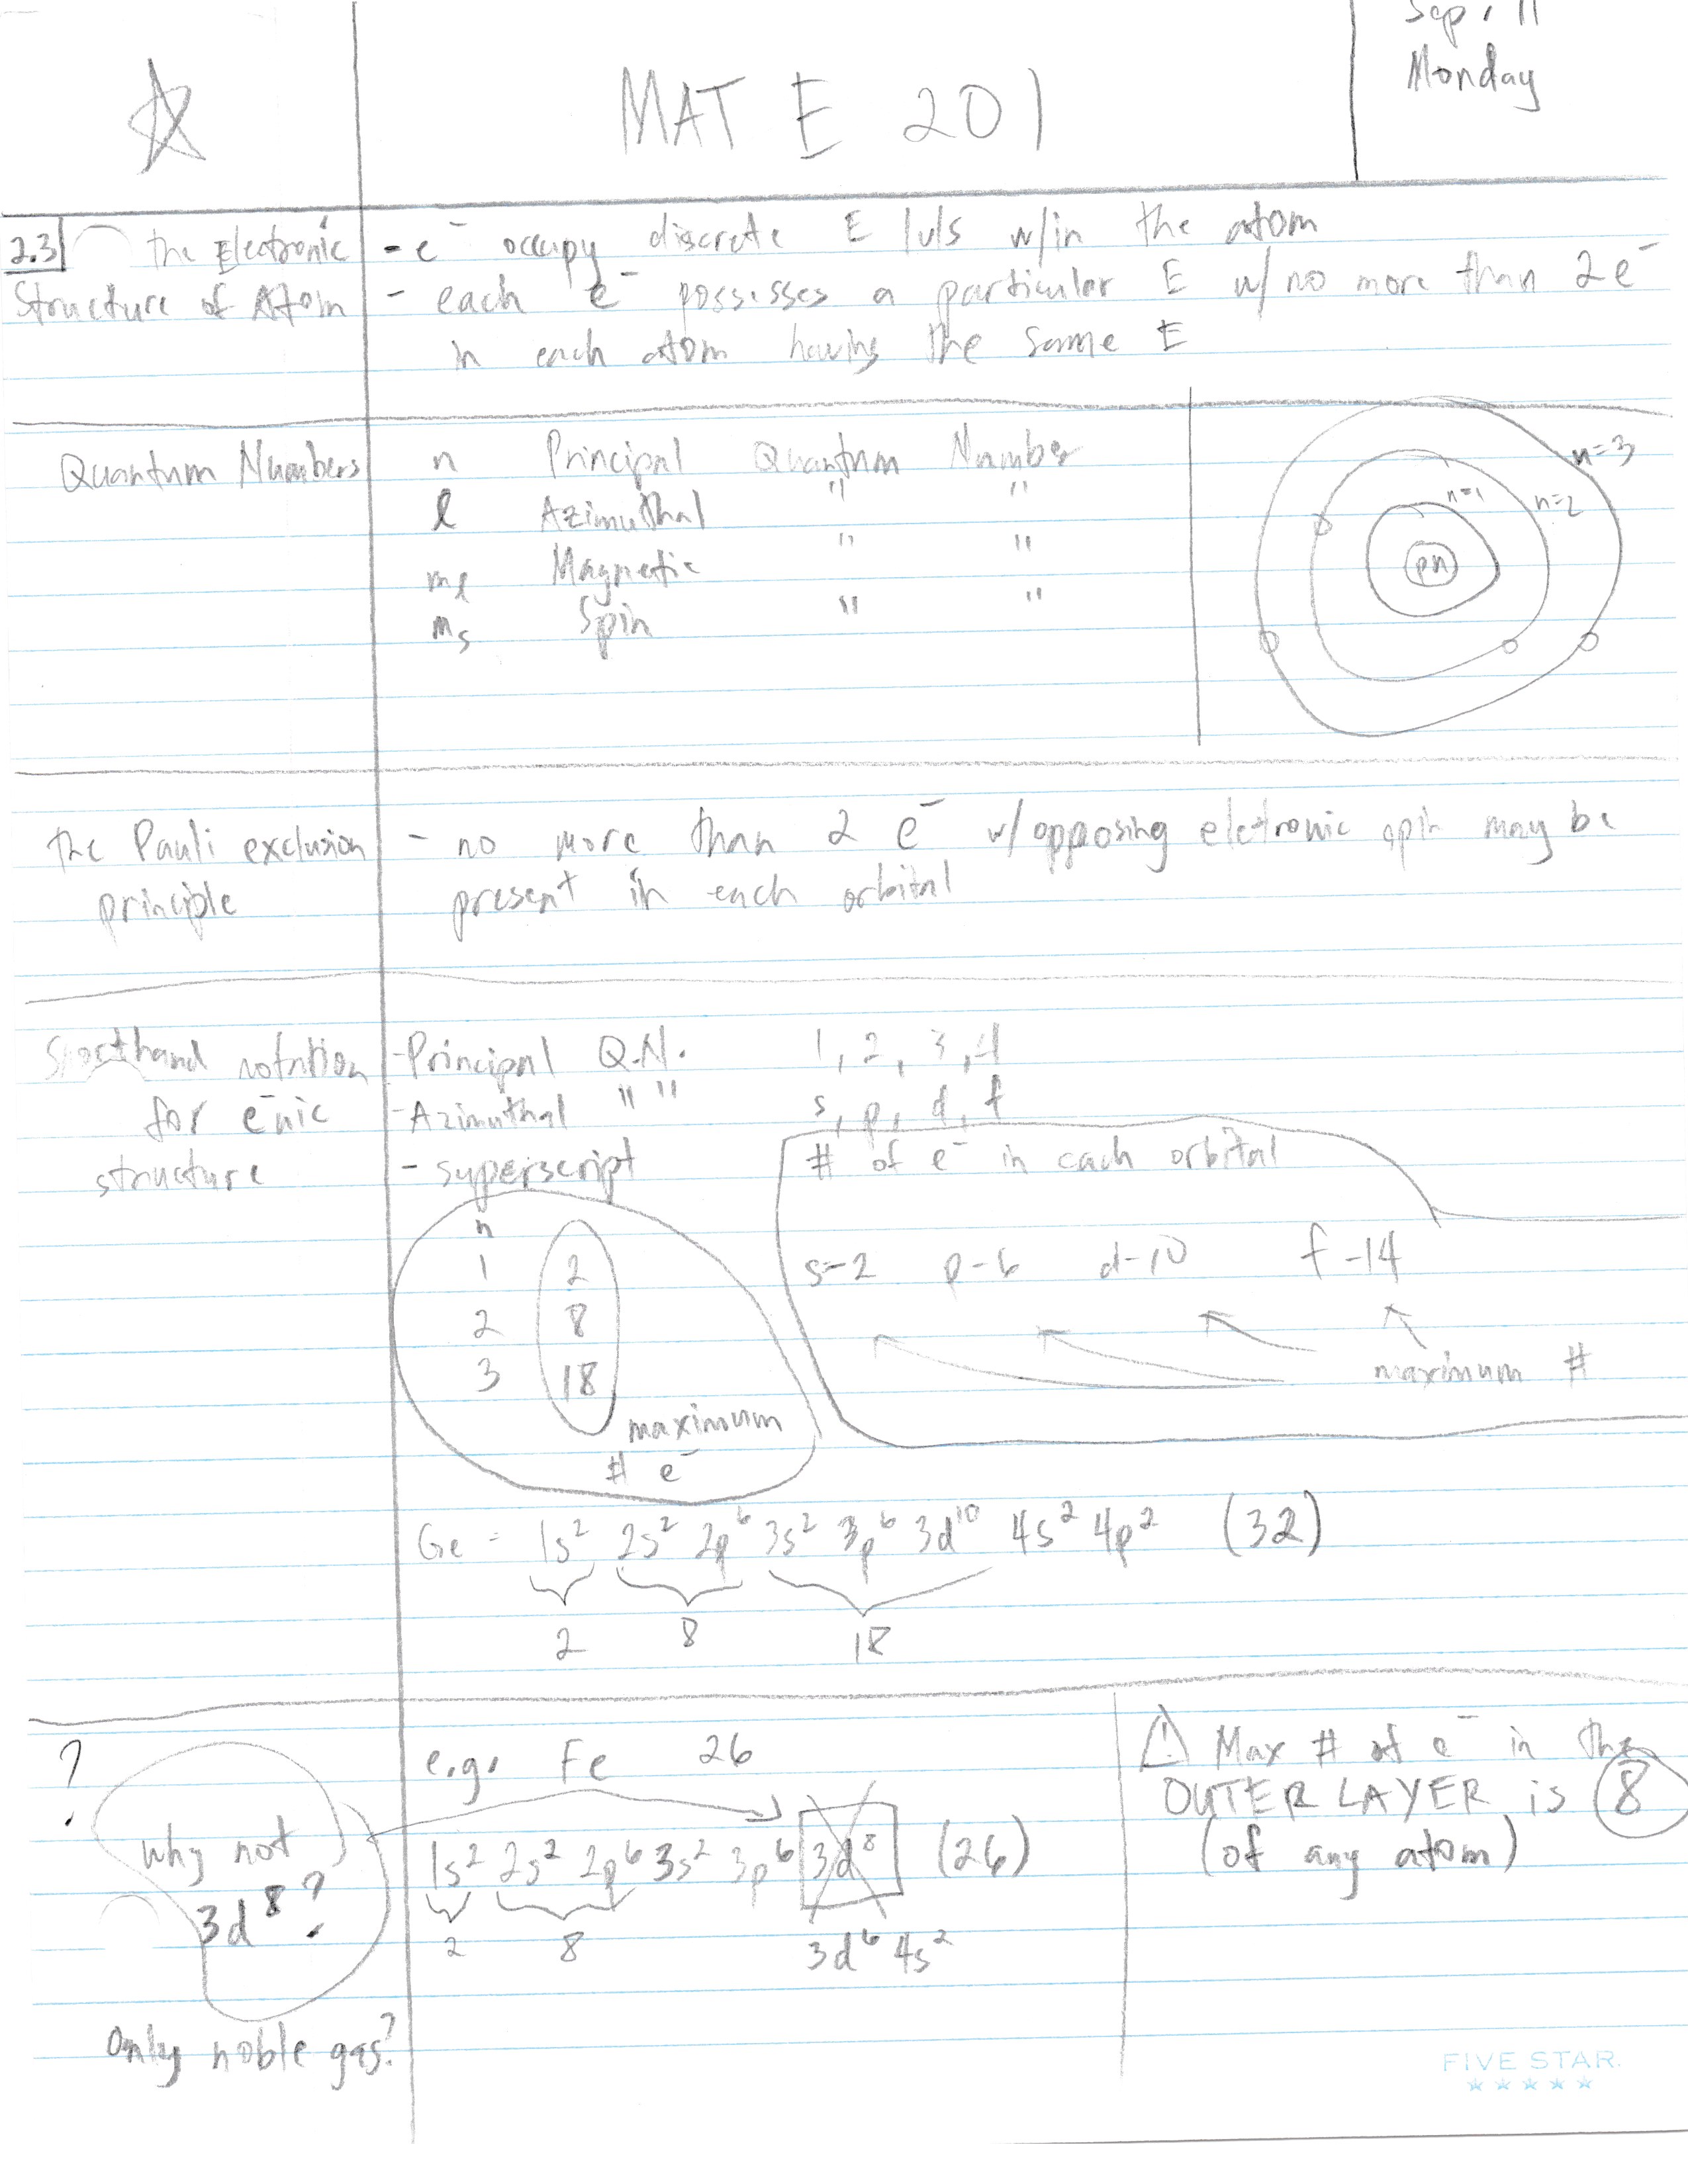 Sep. 11
Monday
MAT E 201
2.3 the Electronic
Structure of Atom
- e⁻ occupy discrete E lvls w/in the atom
- each e⁻ possesses a particular E w/ no more than 2 e⁻
in each atom having the same E
Quantum Numbers
n Principal Quantum Number
ℓ Azimuthal " "
mℓ Magnetic " "
ms Spin " "
n=3
n=1
n=2
pn
the Pauli exclusion
principle
- no more than 2 e⁻ w/ opposing eletronic spin may be
present in each orbital
Shorthand notation
for e⁻nic
structure
- Principal Q.N. 1, 2, 3, 4
- Azimuthal " " s, p, d, f
- superscript # of e⁻ in each orbital
n
1 2
2 8
3 18
maximum
# e⁻
s-2 p-6 d-10 f-14
maximum #
Ge = 1s² 2s² 2p⁶ 3s² 3p⁶ 3d¹⁰ 4s² 4p² (32)
2 8 18
?
why not
3d⁸?
only noble gas?
e.g. Fe 26
1s² 2s² 2p⁶ 3s² 3p⁶ 3d⁸ (26)
2 8 3d⁶ 4s²
⚠ Max # of e⁻ in the
OUTER LAYER is 8
(of any atom)
FIVE STAR.